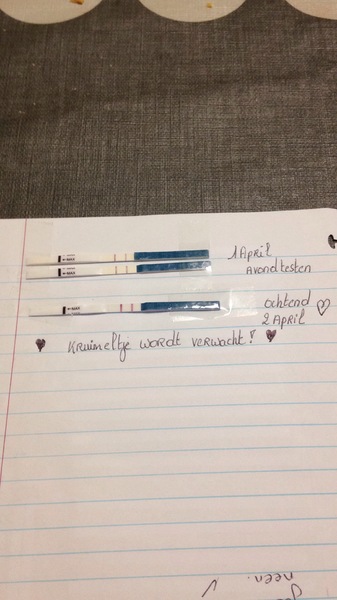 1 April
Avondtesten
ochtend
2 April
Kruimeltje wordt verwacht!
neen.